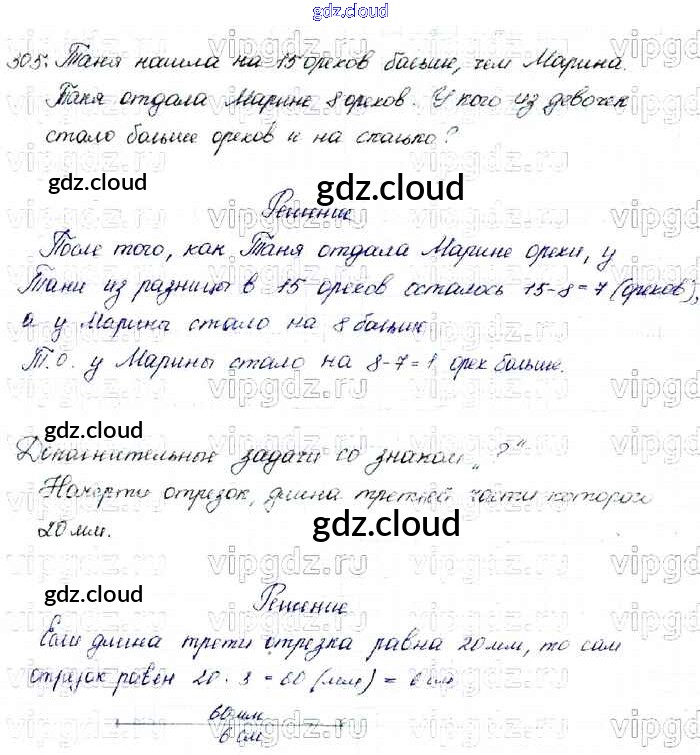 gdz.cloud
305. Таня нашла на 15 орехов больше, чем Марина.
Таня отдала Марине 8 орехов. У кого из девочек
стало больше орехов и на сколько?
gdz.cloud
gdz.cloud
Решение
После того, как Таня отдала Марине орехи, у
Тани из разницы в 15 орехов осталось 15-8=7 (орехов),
а у Марины стало на 8 больше.
Т.о. у Марины стало на 8-7=1 орех больше.
gdz.cloud
Дополнительные задачи со знаком „?“
Начерти отрезок, длина третьей части которого
20 мм.
gdz.cloud
gdz.cloud
Решение
Если длина трети отрезка равна 20 мм, то сам
отрезок равен 20 · 3 = 60 (мм) = 6 см
60 мм
6 см